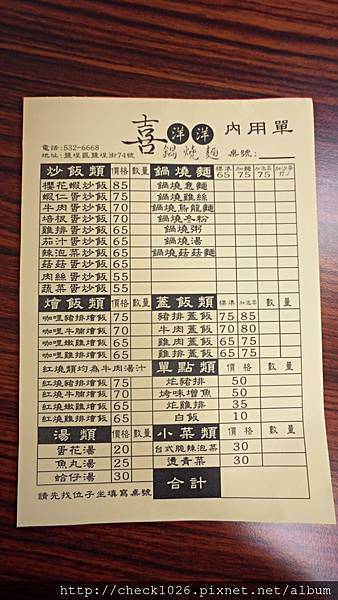 喜洋洋 內用單
鍋燒麵 桌號:
電話:532-6668
地址:鹽埕區鹽埕街74號
炒飯類 價格 數量
櫻花蝦炒飯 85
蝦仁蛋炒飯 75
牛肉蛋炒飯 70
培根蛋炒飯 70
雞排蛋炒飯 65
茄汁蛋炒飯 65
辣泡菜炒飯 65
菇菇蛋炒飯 65
肉絲蛋炒飯 55
蔬菜蛋炒飯 55
鍋燒麵 標準65 加麵75 加泡菜75
鍋燒意麵
鍋燒雞絲
鍋燒烏龍麵
鍋燒冬粉
鍋燒粥
鍋燒湯
鍋燒菇菇麵
燴飯類 價格 數量
咖哩豬排燴飯 75
咖哩牛腩燴飯 70
咖哩嫩雞燴飯 65
咖哩雞排燴飯 65
紅燒類均為牛肉湯汁
紅燒豬排燴飯 75
紅燒牛腩燴飯 70
紅燒嫩雞燴飯 65
紅燒雞排燴飯 65
蓋飯類 標準 加泡菜 數量
豬排蓋飯 75 85
牛肉蓋飯 70 80
雞肉蓋飯 65 75
雞排蓋飯 65 75
單點類 價格 數量
炸豬排 50
烤味增魚 50
炸雞排 35
白飯 10
湯類 價格 數量
蛋花湯 20
魚丸湯 25
蛤仔湯 30
小菜類 價格 數量
台式脆辣泡菜 30
燙青菜 30
合計
請先找位子坐填寫桌號
http://check1026.pixnet.net/album